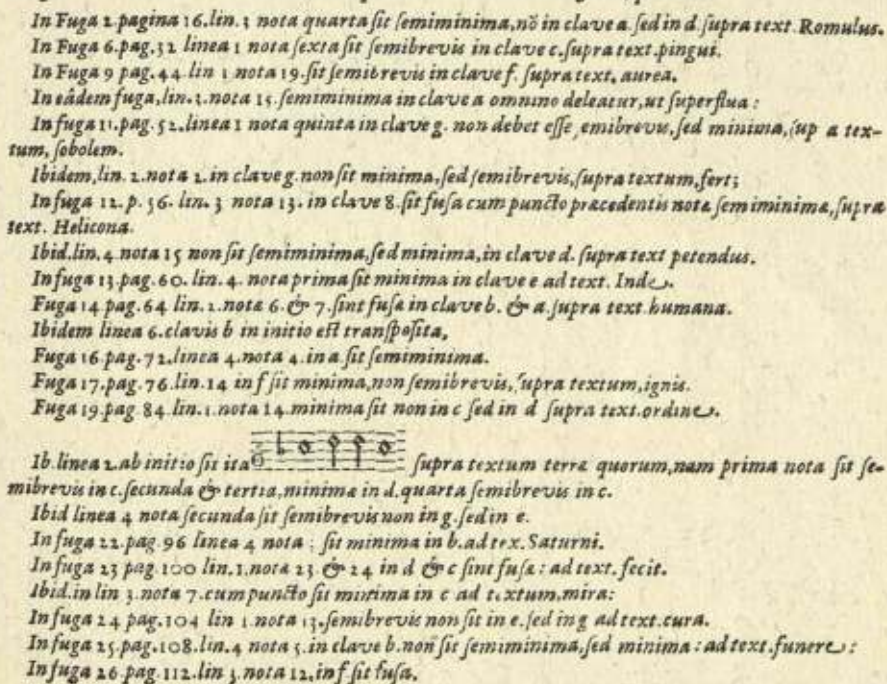 In Fuga 2. pagina 16. lin. 3 nota quarta sit semiminima, nō in clave a. sed in d. supra text. Romulus.
In Fuga 6. pag. 32 linea 1 nota sexta sit semibrevis in clave c. supra text. pingui.
In Fuga 9 pag. 44. lin 1 nota 19. sit semibrevis in clave f. supra text. aurea.
In eâdem fuga, lin. 3. nota 15. semiminima in clave a omnino deleatur, ut superflua:
In fuga 11. pag. 52. linea 1 nota quinta in clave g. non debet esse emibrevis, sed minima, sup a tex-
tum, sobolem.
Ibidem, lin. 2. nota 2. in clave g. non sit minima, sed semibrevis, supra textum, fert;
In fuga 12. p. 56. lin. 3 nota 13. in clave 8. sit fusa cum puncto præcedentis notæ semiminimæ, supra
text. Helicona.
Ibid. lin. 4 nota 15 non sit semiminima, sed minima, in clave d. supra text petendus.
In fuga 13 pag. 60. lin. 4. nota prima sit minima in clave e ad text. Inde.
Fuga 14 pag. 64 lin. 2. nota 6. & 7. sint fusæ in clave b. & a. supra text. humana.
Ibidem linea 6. clavis b in initio est transposita,
Fuga 16. pag. 72. linea 4. nota 4. in a. sit semiminima.
Fuga 17. pag. 76. lin. 14 in f sit minima, non semibrevis, supra textum, ignis.
Fuga 19. pag 84. lin. 1. nota 14. minima sit non in c sed in d supra text. ordine.
Ib. linea 2. ab initio sit ita supra textum terræ quorum, nam prima nota sit se-
mibrevis in c. secunda & tertia, minimæ in d. quarta semibrevis in c.
Ibid linea 4 nota secunda sit semibrevis non in g. sed in e.
In fuga 22. pag. 96 linea 4 nota ; sit minima in b. ad tex. Saturni.
In fuga 23 pag. 100 lin. 1. nota 23. & 24 in d & c sint fusæ: ad text. fecit.
Ibid. in lin 3. nota 7. cum puncto sit minima in c ad textum, mira:
In fuga 24 pag. 104 lin 1. nota 13, semibrevis non sit in e. sed in g ad text. cura.
In fuga 25. pag. 108. lin. 4 nota 5. in clave b. non sit semiminima, sed minima: ad text. funere:
In fuga 26. pag. 112. lin 3. nota 12, in f sit fusa.